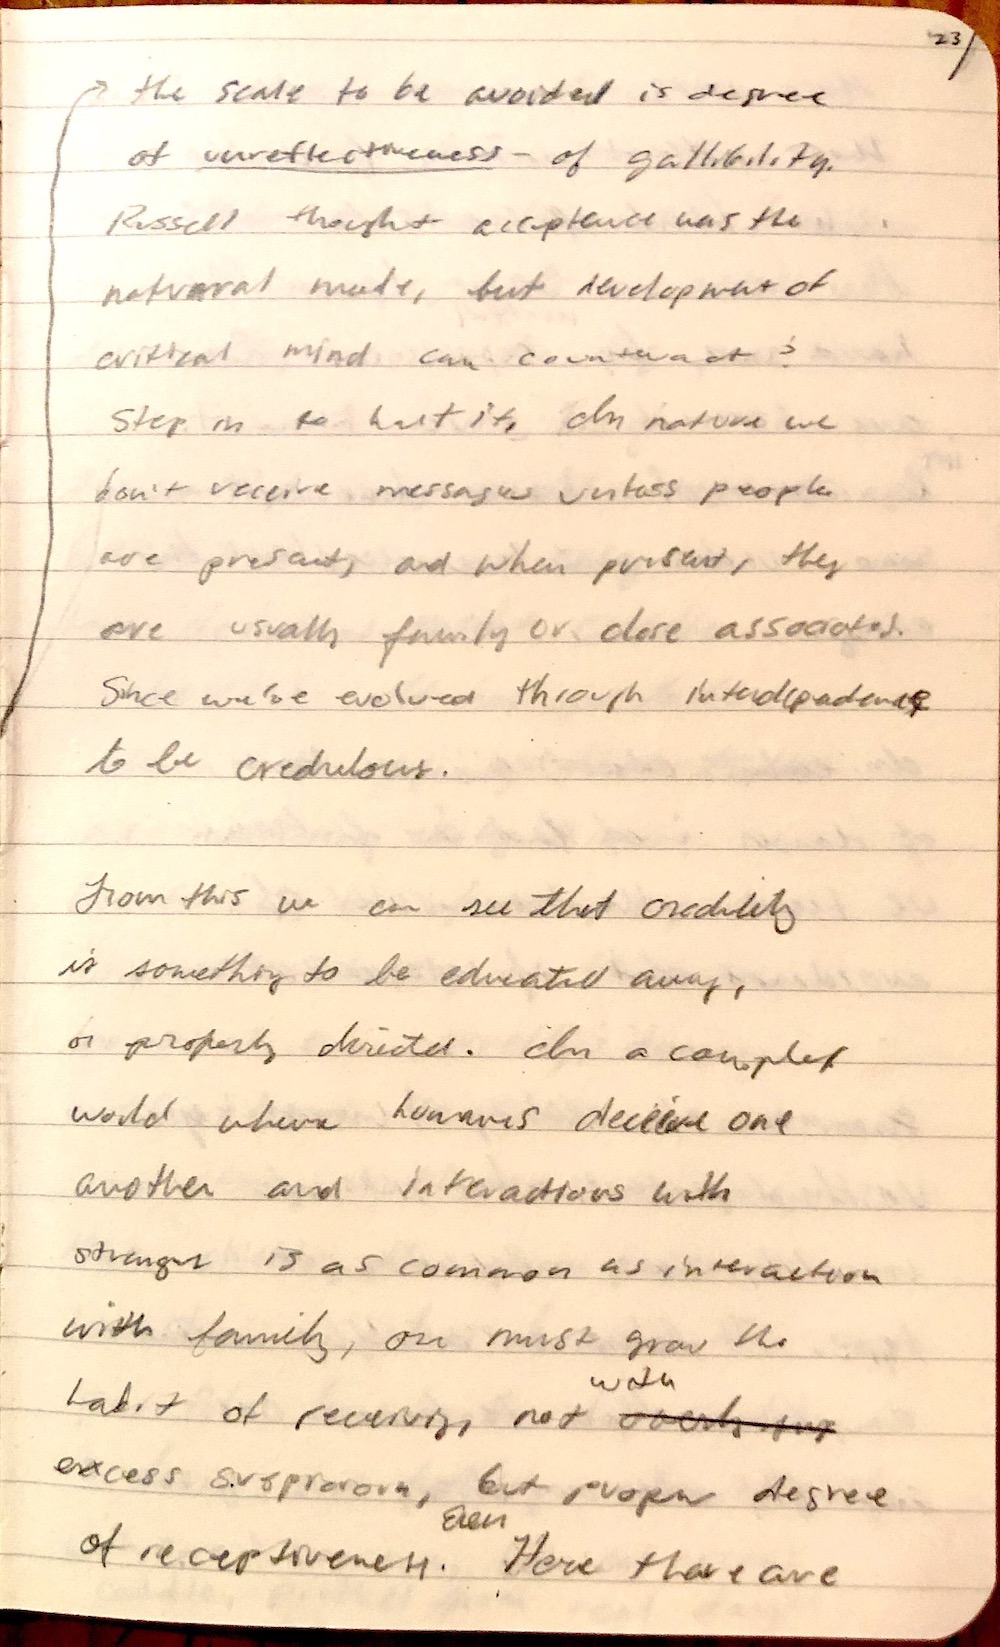 23/
the scale to be avoided is degree
of unreflectiveness - of gullibility.
Russell thought acceptance was the
natural mode, but development of
critical mind can counteract &
Step in to halt it. In nature we
don't receive messages unless people
are present, and when present, they
are usually family or close associates.
Since we've evolved through interdependence
to be credulous.
From this we can see that credulity
is something to be educated away,
or properly directed. In a complex
world where humans deceive one
another and interactions with
stranger is as common as interaction
with family, one must grow the
with
habit of receiving, not
excess suspicion, but proper degree
Even
of receptiveness. Here there are